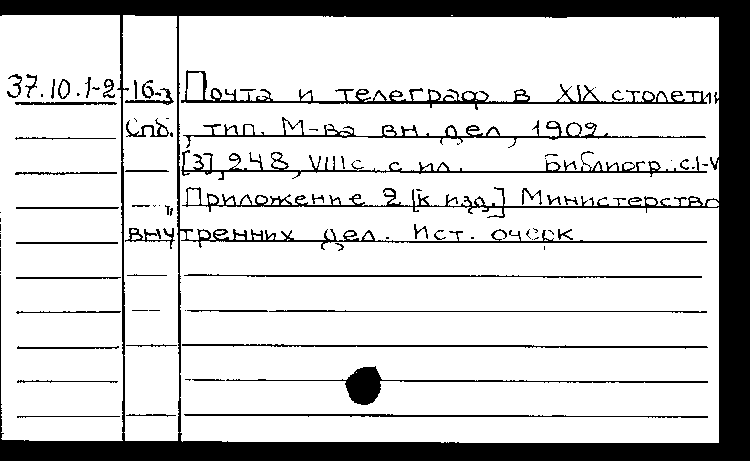 37.10.1-2-16-3 Почта и телеграф в XIX столетии
Спб., тип. М-ва вн. дел, 1902.
[3], 248, VIII с. с ил. Библиогр.: с. I-V
Приложение 2 [к изд.] Министерство
внутренних дел. Ист. очерк.